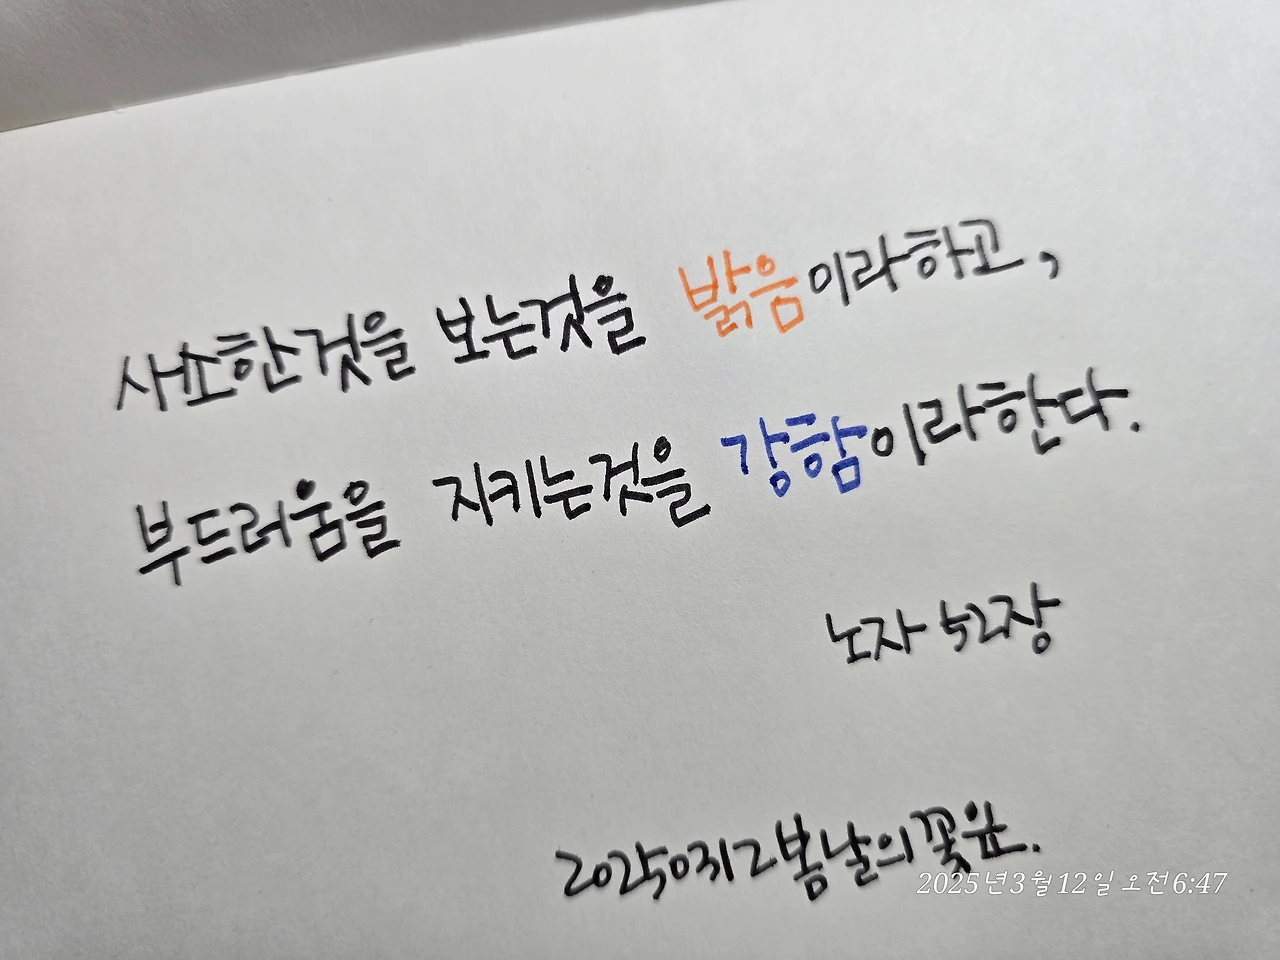 사소한것을 보는것을 밝음이라하고,
부드러움을 지키는것을 강함이라한다.
노자 52장
20250312 봄날의 꽃잎.
2025년3월12일 오전6:47